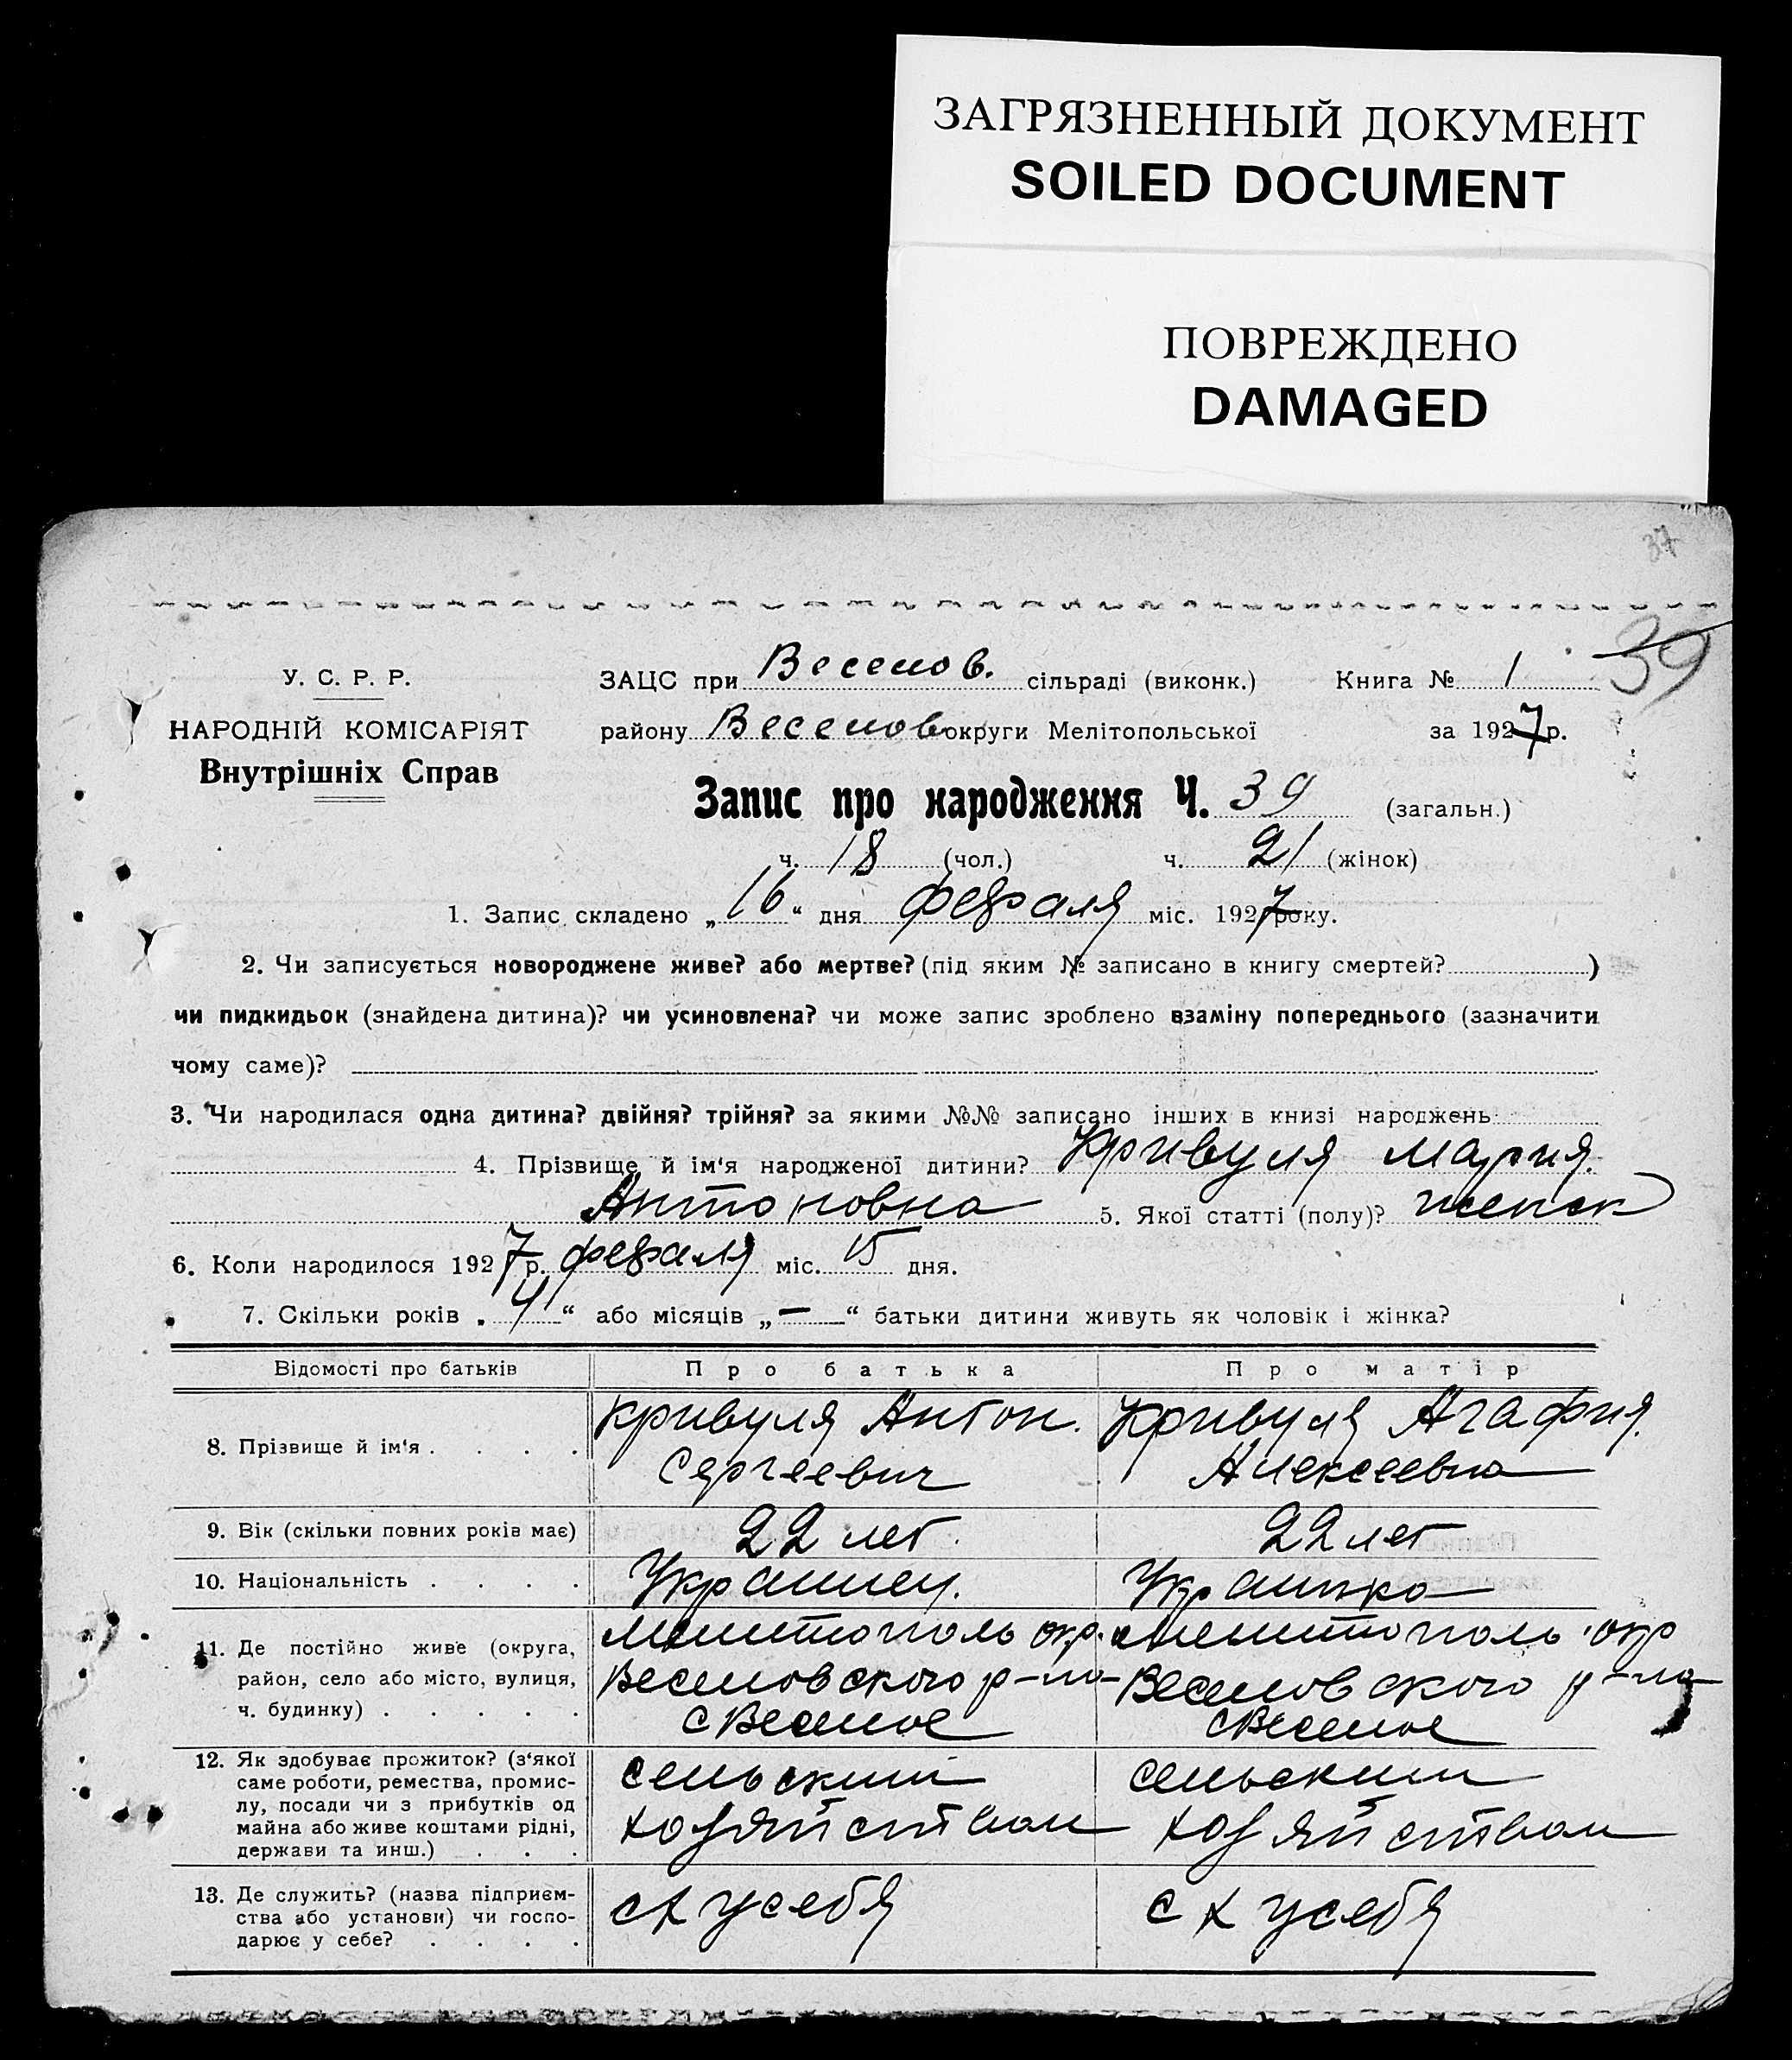 ЗАГРЯЗНЕННЫЙ ДОКУМЕНТ
SOILED DOCUMENT
ПОВРЕЖДЕНО
DAMAGED
37
39
У. С. Р. Р.
НАРОДНІЙ КОМІСАРІЯТ
Внутрішніх Справ
ЗАЦС при Веселов. сільраді (виконк.) Книга № 1
району Веселов округи Мелітопольської за 1927 р.
Запис про народження Ч. 39 (загальн.)
ч. 18 (чол.) ч. 21 (жінок)
1. Запис складено „16“ дня февраля міс. 1927 року.
2. Чи записується новороджене живе? або мертве? (під яким № записано в книгу смертей? )
чи пидкидьок (знайдена дитина)? чи усиновлена? чи може запис зроблено взаміну попереднього (зазначити
чому саме)?
3. Чи народилася одна дитина? двійня? трійня? за якими №№ записано інших в книзі народжень
4. Прізвище й ім‘я народженої дитини? Кривуля Мария.
Антоновна 5. Якої статті (полу)? женск
6. Коли народилось 1927 р. февраля міс. 15 дня.
7. Скільки років „4“ або місяців „—“ батьки дитини живуть як чоловік і жінка?
Відомості про батьків Про батька Про матір
8. Прізвище й ім‘я . . . . Кривуля Антон. Кривуля Агафия.
Сергеевич Алексеевна
9. Вік (скільки повних років має) 22 лет. 22 лет
10. Національність . . . . Украинец. Украинка
11. Де постійно живе (округа, Мелитополь окр. Мелитополь окр
район, село або місто, вулиця, Веселовского р-на Веселовского р-на
ч. будинку) . . . . . с Веселое с Веселое
12. Як здобуває прожиток? (з‘якої
саме роботи, ремества, промис- сельским сельским
лу, посади чи з прибутків од
майна або живе коштами рідні, хозяйством хозяйством
держави та инш.) . . .
13. Де служить? (назва підприєм-
ства або установи) чи госпо- с х у себя с х у себя
дарює у себе? . . . .